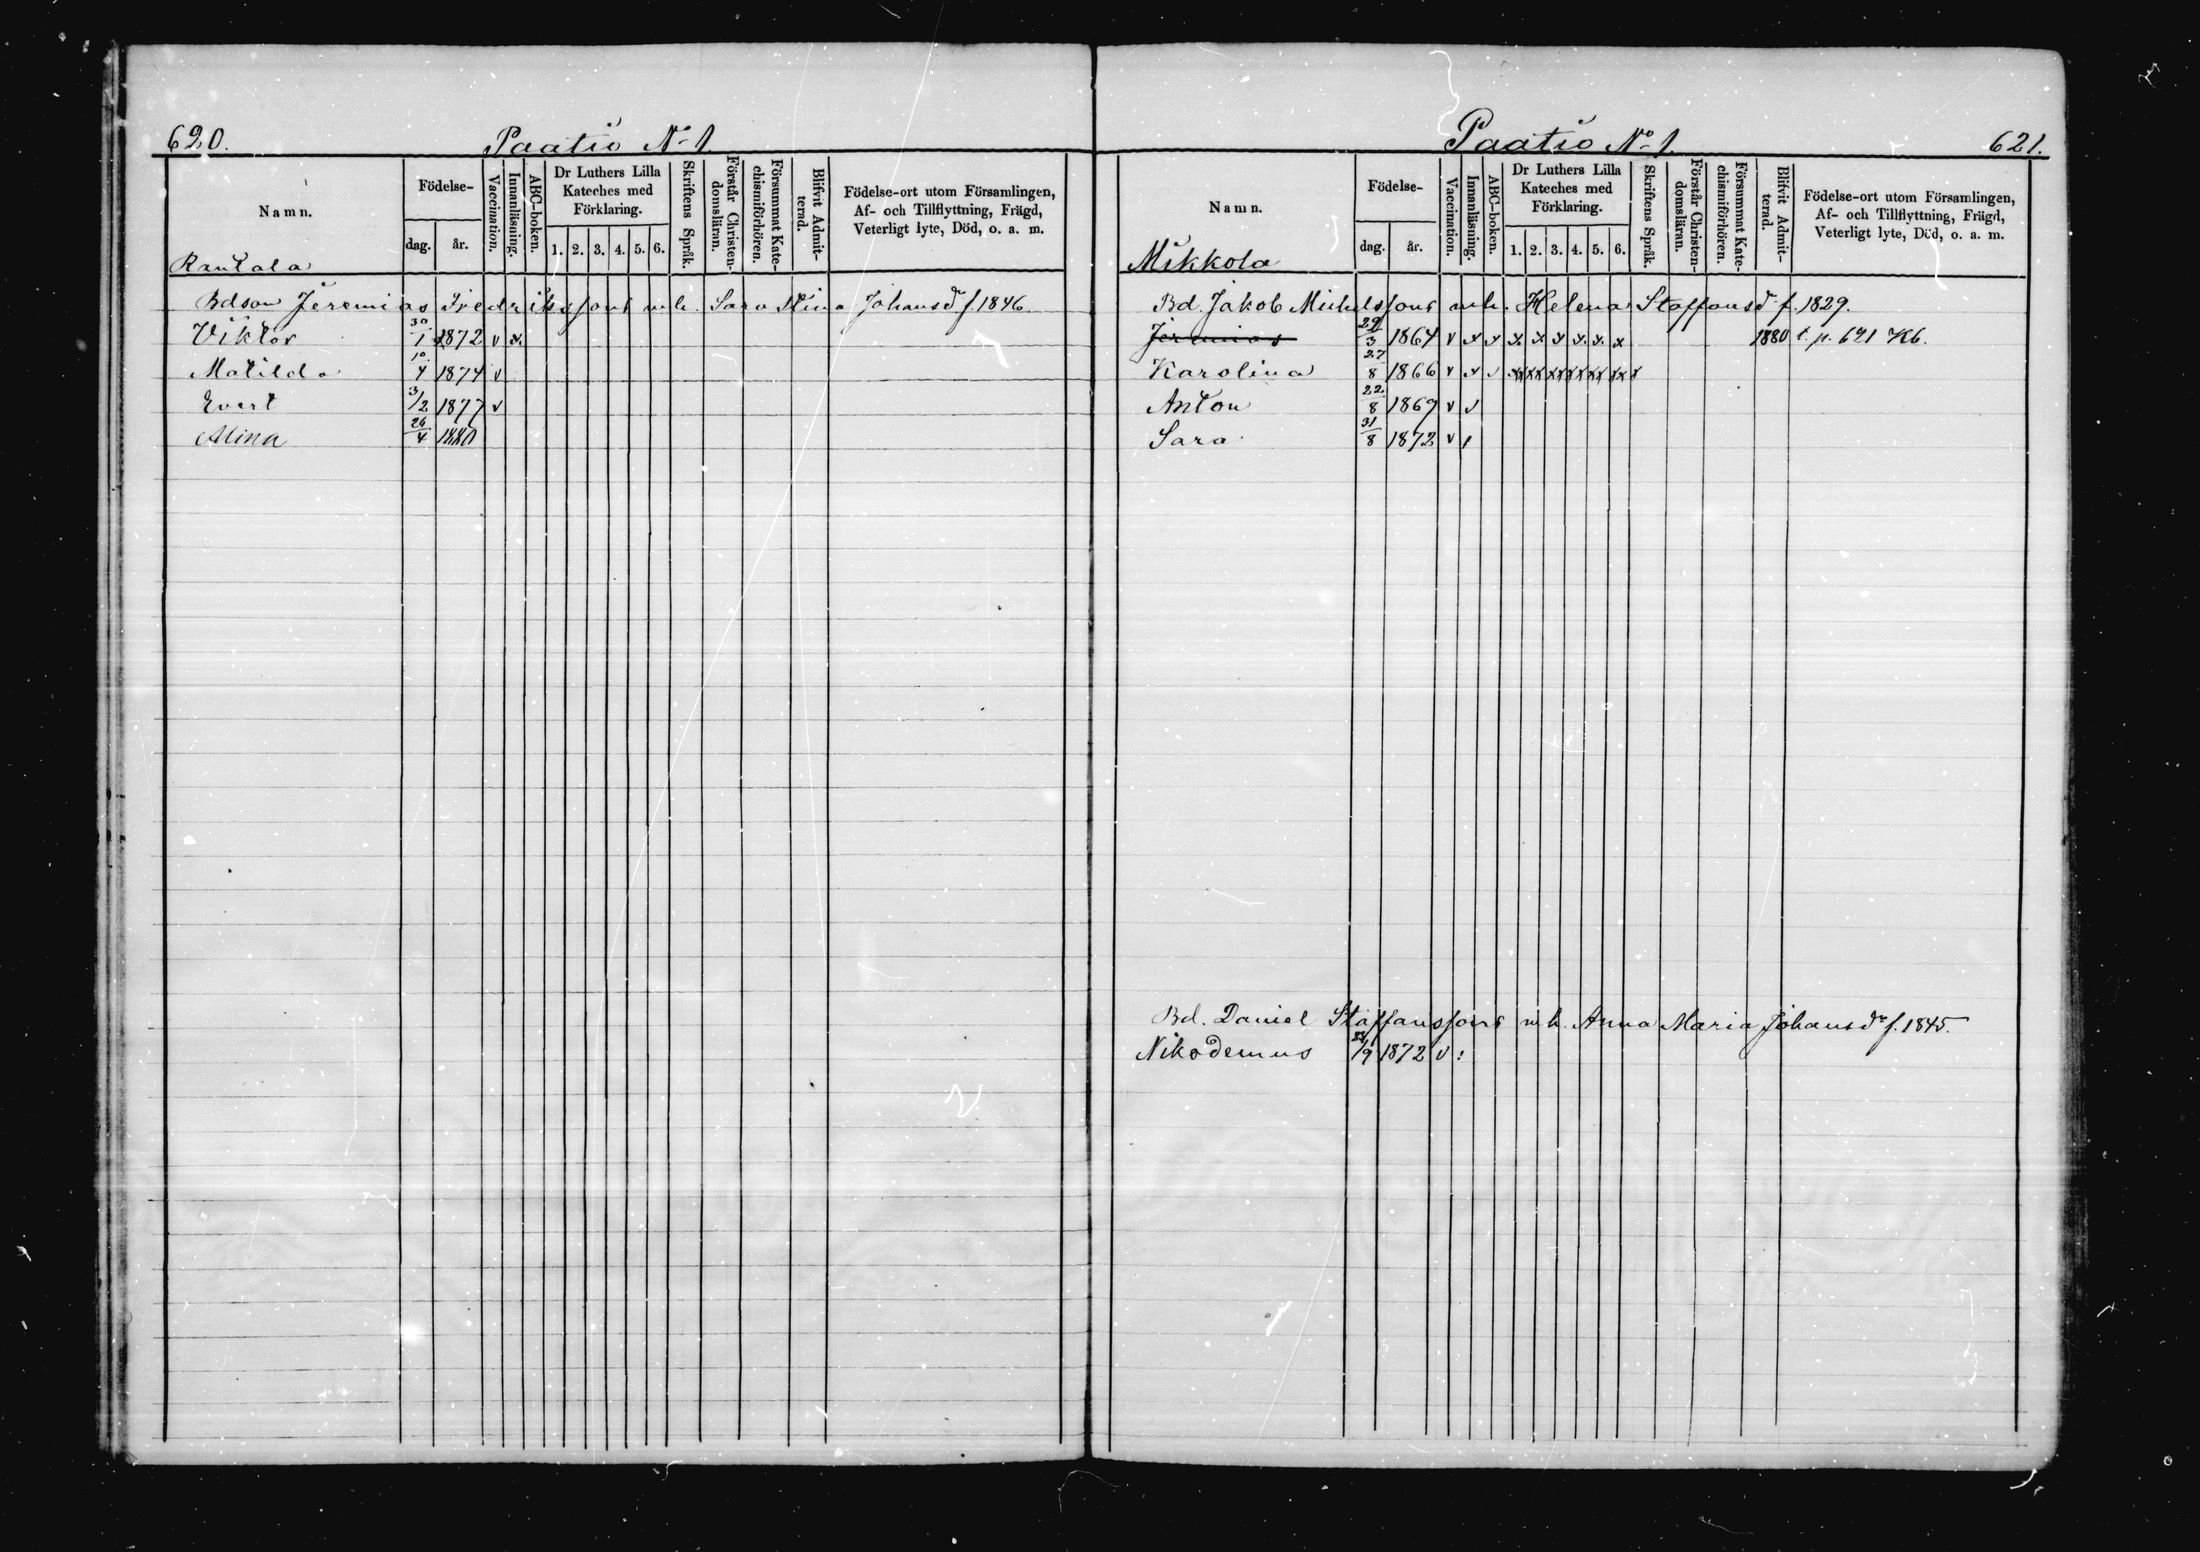 620.
Paatio No 1.
Namn.
Födelse-
dag.
år.
Vaccination.
Innanläsning.
ABC-boken.
Dr Luthers Lilla
Kateches med
Förklaring.
1. 2. 3. 4. 5. 6.
Skriftens Språk.
Förstår Christen-
domsläran.
Försummat Kate-
chismiförhören.
Blifvit Admit-
terad.
Födelse-ort utom Församlingen,
Af- och Tillflyttning, Frägd,
Veterligt lyte, Död, o. a. m.
Rantala
Bdson Jeremias Fredrikssons m h. Sara Stina Johansdr f. 1846.
Viktor 30/1 1872 v x.
Matilda 10/4 1874 v
Evert 3/2 1877 v
Alina 26/4 1880
Paatio No 1.
621.
Namn.
Födelse-
dag.
år.
Vaccination.
Innanläsning.
ABC-boken.
Dr Luthers Lilla
Kateches med
Förklaring.
1. 2. 3. 4. 5. 6.
Skriftens Språk.
Förstår Christen-
domsläran.
Försummat Kate-
chismiförhören.
Blifvit Admit-
terad.
Födelse-ort utom Församlingen,
Af- och Tillflyttning, Frägd,
Veterligt lyte, Död, o. a. m.
Mikkola
Bd. Jakob Michelssons m h. Helena Staffansdr f. 1829.
Jeremias 29/3 1864 v x x x x x x x x 1880 t. p. 621 Kb.
Karolina 27/8 1866 v x v xx xx xx xx xx xx x
Anton 22/8 1869 v v
Sara 31/8 1872 v
Bd. Daniel Staffanssons m h. Anna Maria Johansdr f. 1845.
Nikodemus /9 1872 v :